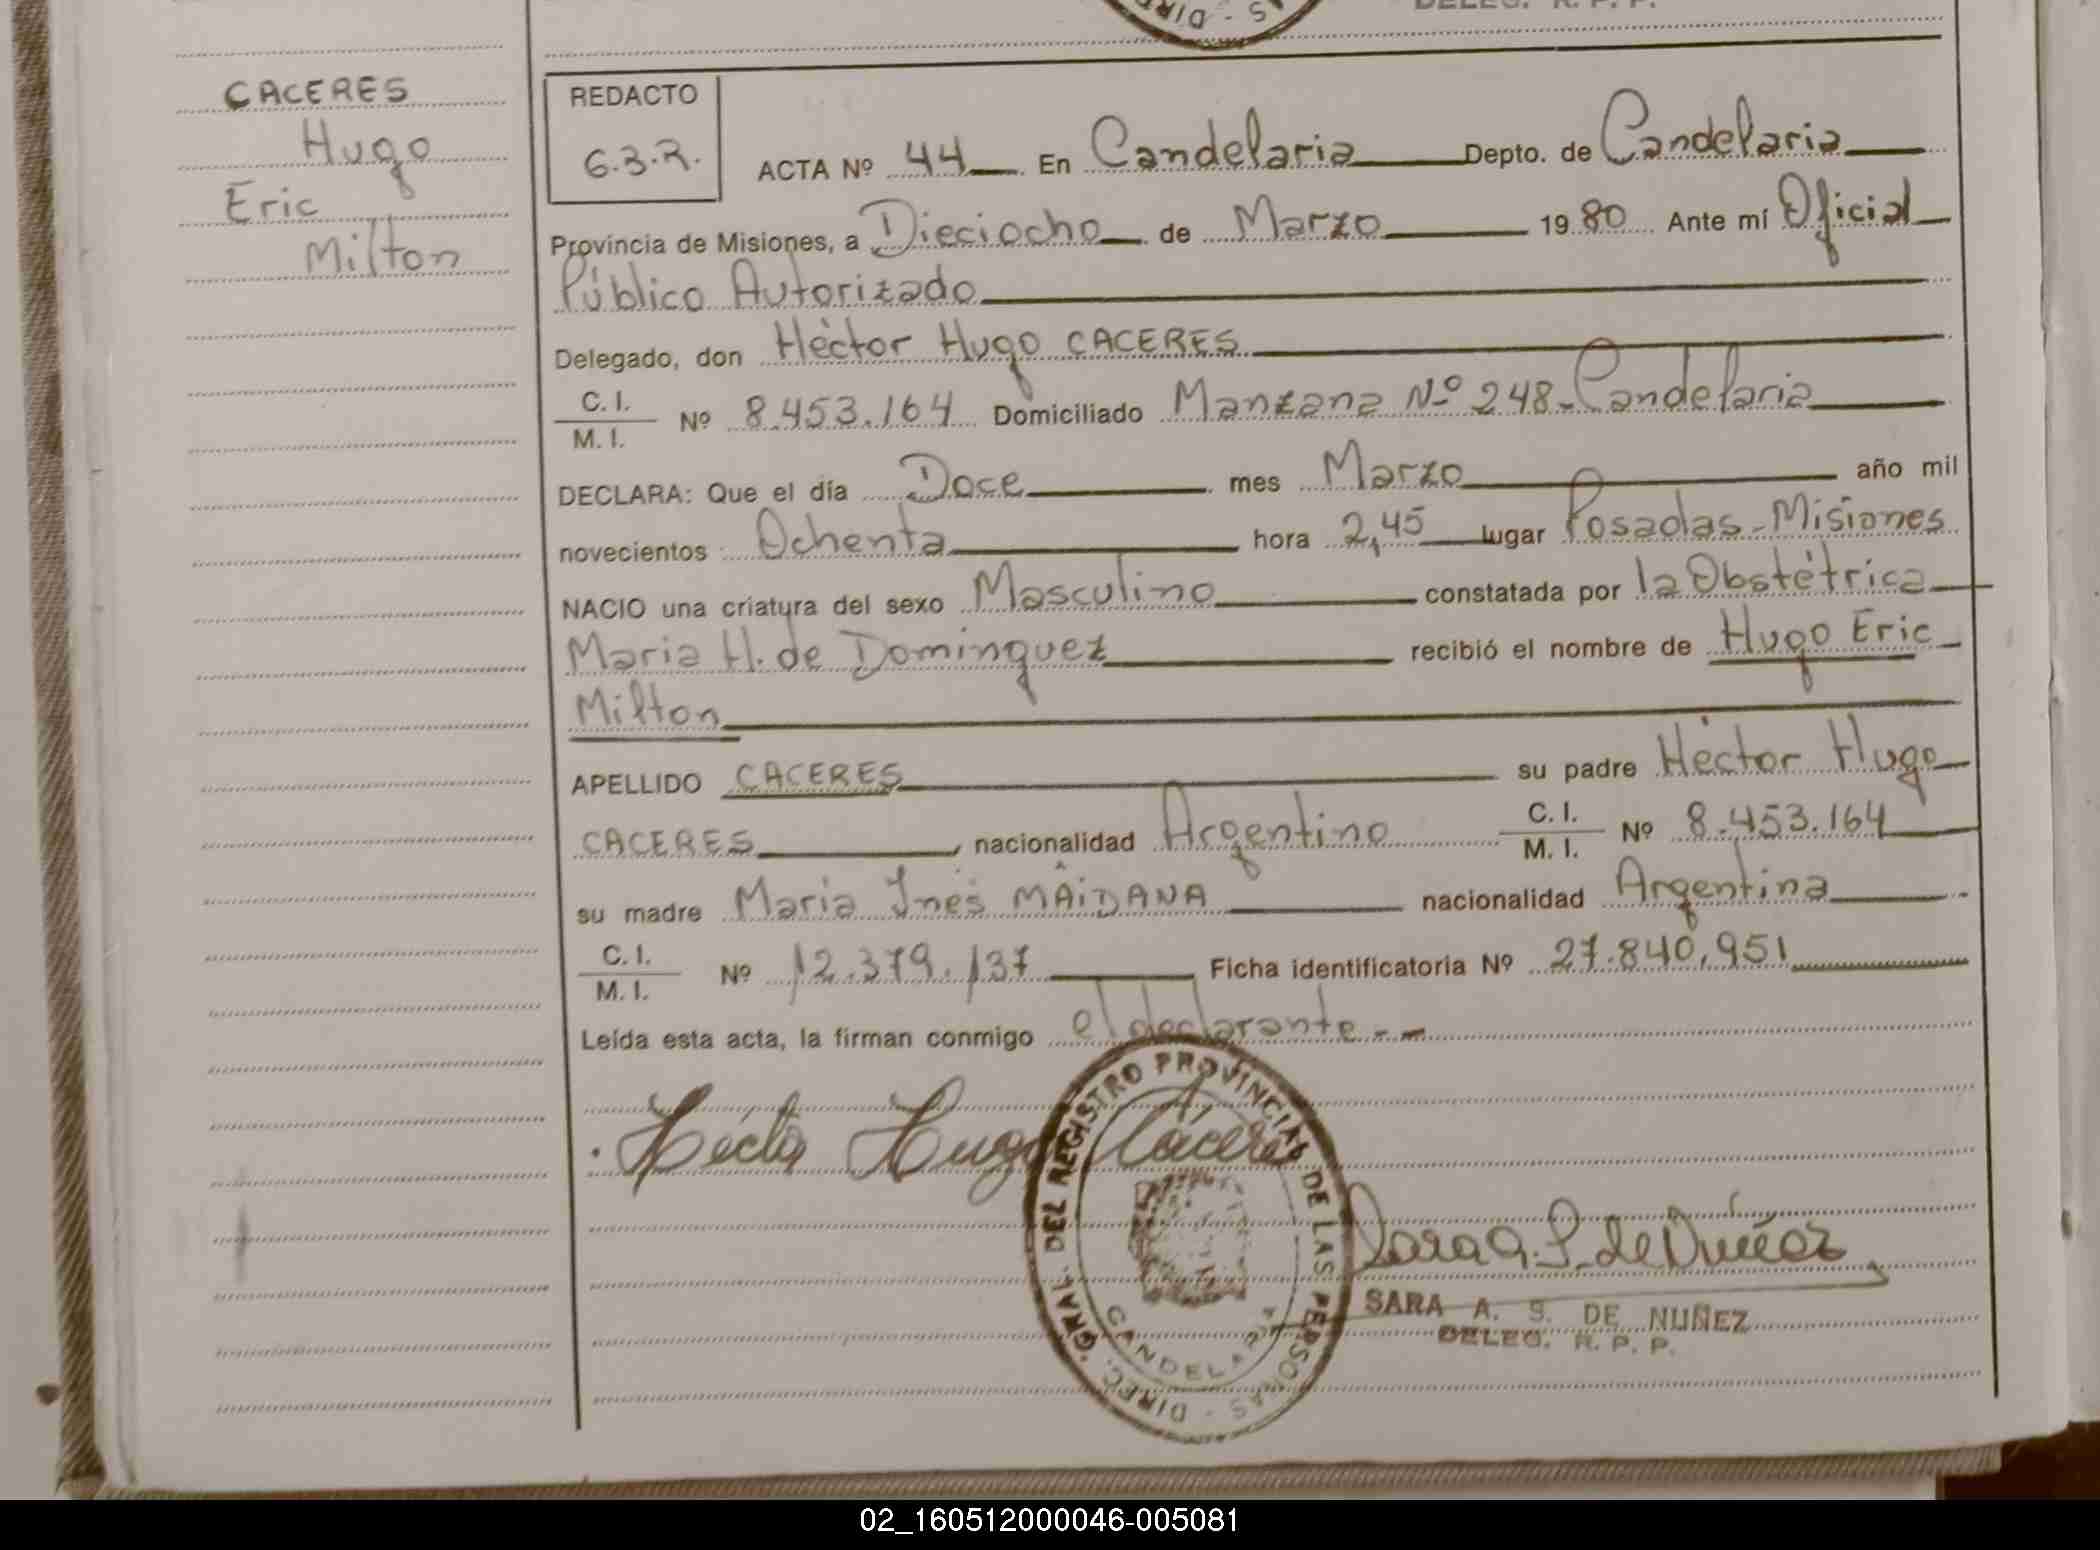 DELEG. R. P. P.
DIREC. AS -
CACERES
Hugo
Eric
Milton
REDACTO
G.B.R.
ACTA Nº 44 En Candelaria Depto. de Candelaria
Provincia de Misiones, a Dieciocho de Marzo 1980 Ante mí Oficial
Público Autorizado
Delegado, don Héctor Hugo CACERES
C. I.
M. I. Nº 8.453.164 Domiciliado Manzana Nº 248 - Candelaria
DECLARA: Que el día Doce mes Marzo año mil
novecientos Ochenta hora 2,45 lugar Posadas - Misiones
NACIO una criatura del sexo Masculino constatada por la Obstétrica
Maria H. de Dominguez recibió el nombre de Hugo Eric
Milton
APELLIDO CACERES su padre Héctor Hugo
CACERES, nacionalidad Argentino C. I.
M. I. Nº 8.453.164
su madre Maria Inés MAiDANA nacionalidad Argentina
C. I.
M. I. Nº 12.379.137 Ficha identificatoria Nº 27.840.951
Leída esta acta, la firman conmigo el declarante
Héctor Hugo Cáceres
DIREC. GRAL. DEL REGISTRO PROVINCIAL DE LAS PERSONAS -
CANDELARIA
Sara A. S. de Núñez
SARA A. S. DE NUÑEZ
DELEG. R. P. P.
02_160512000046-005081